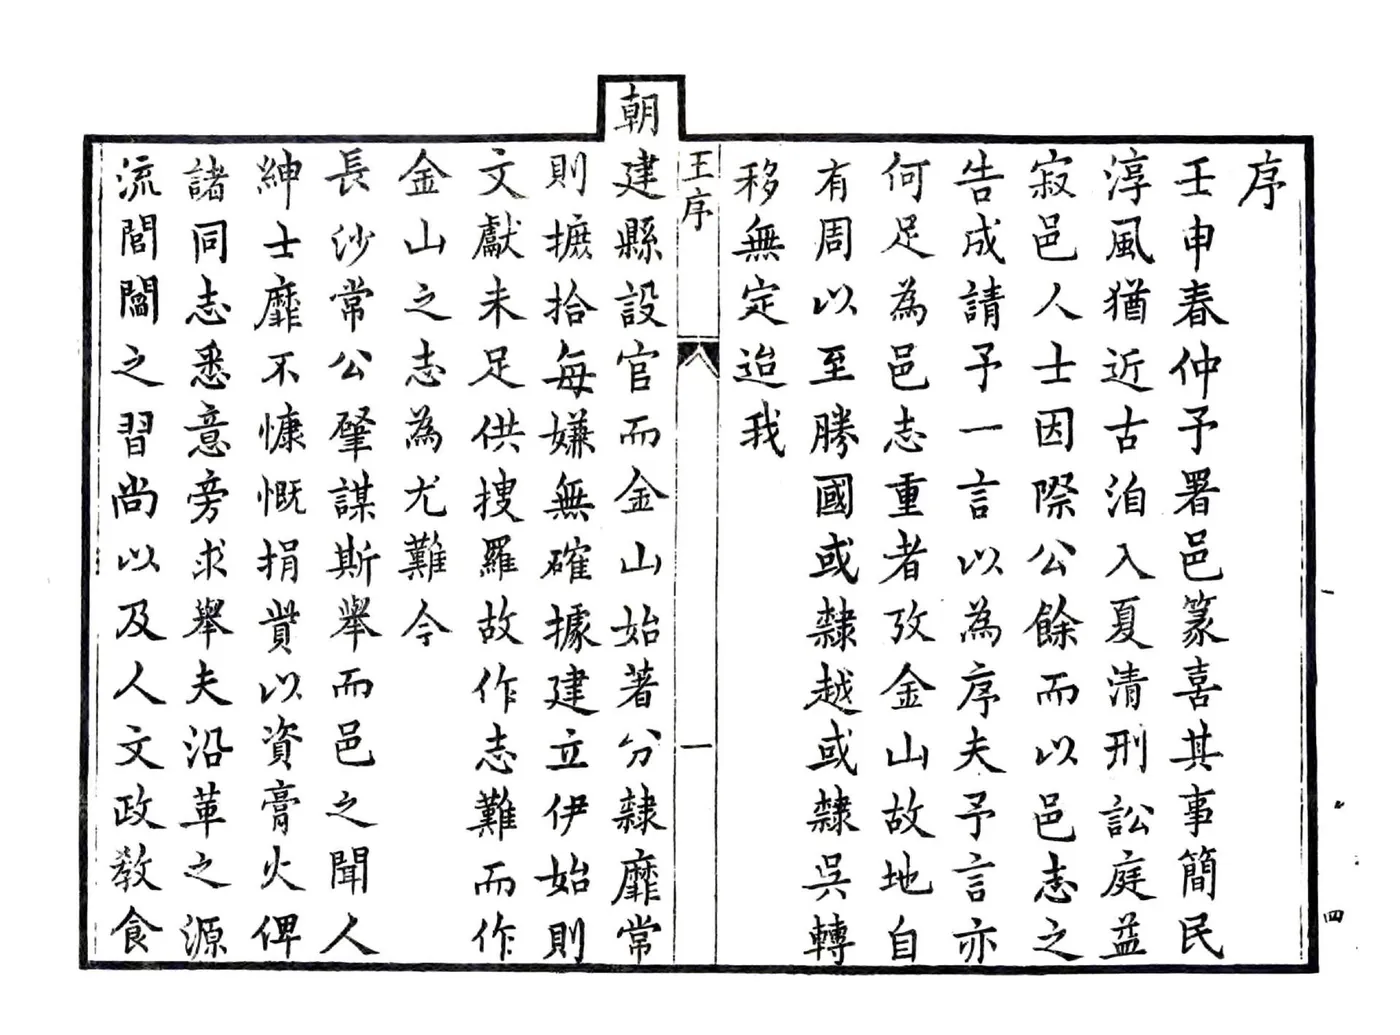 序
壬申春仲予署邑篆喜其事簡民
淳風猶近古洎入夏清刑訟庭益
寂邑人士因際公餘而以邑志之
告成請予一言以為序夫予言亦
何足為邑志重者攷金山故地自
有周以至勝國或隸越或隸吳轉
移無定迨我
王序
一
朝建縣設官而金山始著分隸靡常
則摭拾每嫌無確據建立伊始則
文獻未足供搜羅故作志難而作
金山之志為尤難今
長沙常公肇謀斯舉而邑之聞人
紳士靡不慷慨捐貲以資膏火俾
諸同志悉意旁求舉夫沿革之源
流閭閻之習尚以及人文政教食
四